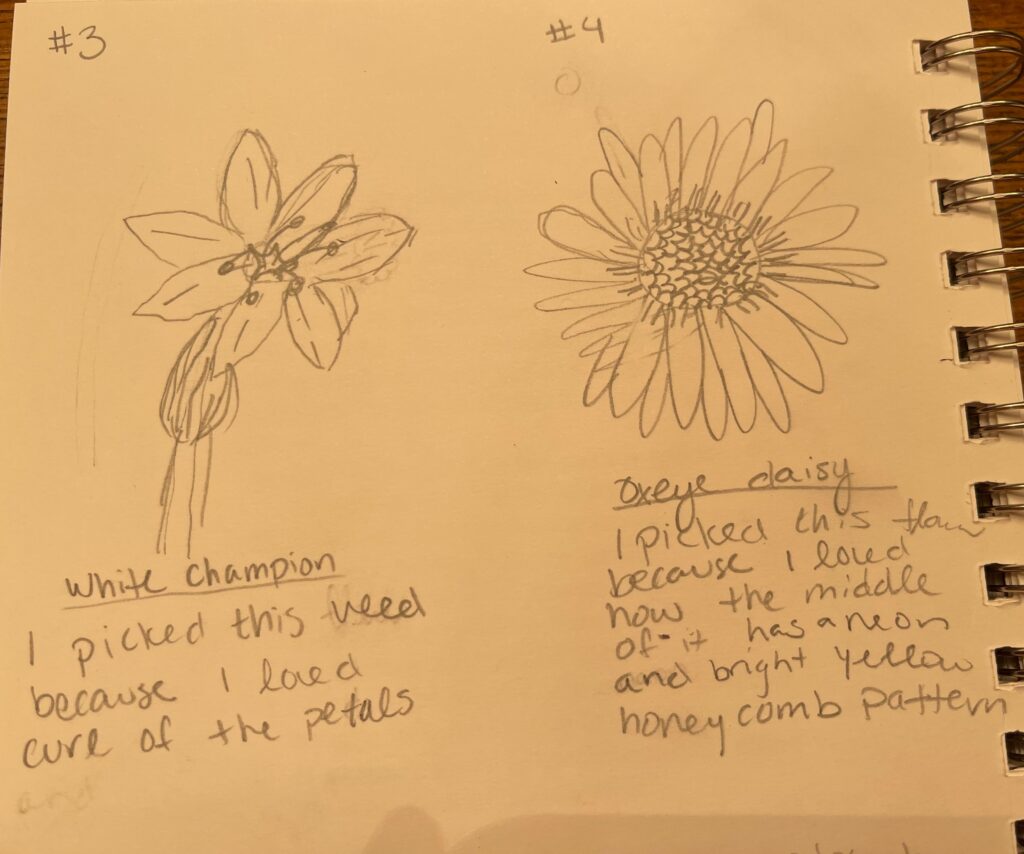 #3
White Champion
I picked this weed
because I loved
curl of the petals
and
#4
Oxeye daisy
I picked this
because I loved
how the middle
of it has a neon
and bright yellow
honey comb pattern